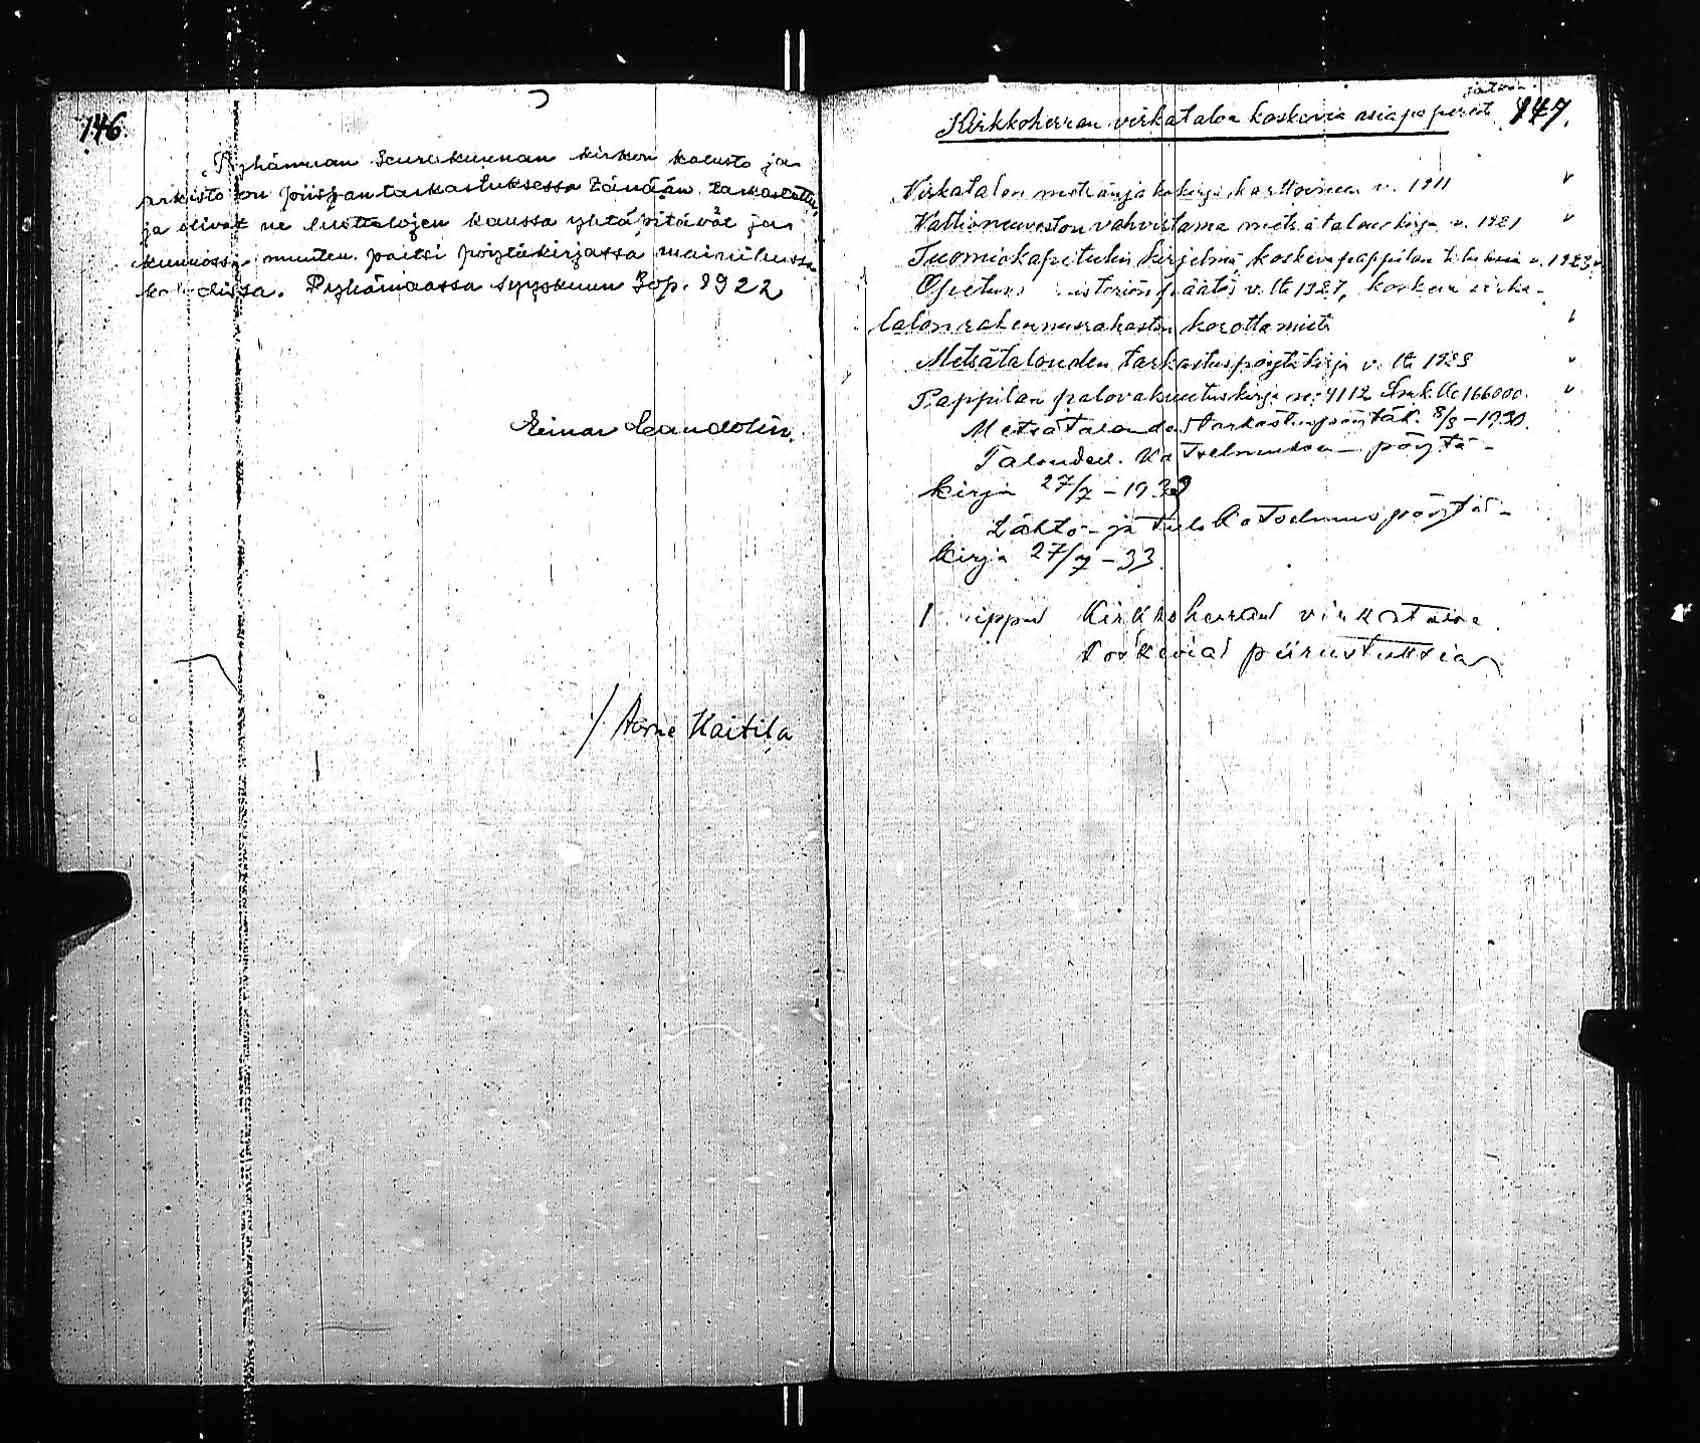 146.
Pyhämaan Seurakunnan kirkon kalusto ja
arkisto on piispantarkastuksessa tänään tarkastettu,
ja olivat ne luettelojen kanssa yhtäpitävät ja
kunnossa muuten paitsi pöytäkirjassa mainituissa
kohdissa. Pyhämaassa syyskuun 30 p. 1922
Einar Candolin.
/ Aarne Kaitila
147.
Kirkkoherran virkataloa koskevia asiapapereita
Virkatalon metsänjakokirja karttoineen v. 1911 v
Valtioneuvoston vahvistama metsätalouskirja v. 1921 v
Tuomiokapitulin kirjelmä, koskeva pappilan v. 1923 v
päätös v. lta 1927, koskeva virka-
talon rakennusrahaston korottamista
Metsätalouden tarkastuspöytäkirja v. lta 1928 v
Pappilan palovakuutuskirja no: 4112 Smk. 166000. v
Metsätaloudestarkastuspöytäk. 8/8 – 1930.
Talouden katselmuksen – pöytä-
kirja 27/7 – 1933
Lähtö- ja tulokatselmuspöytä-
kirja 27/7 – 33.
1 nippu Kirkkoherran virkataloa
koskevia piirustuksia